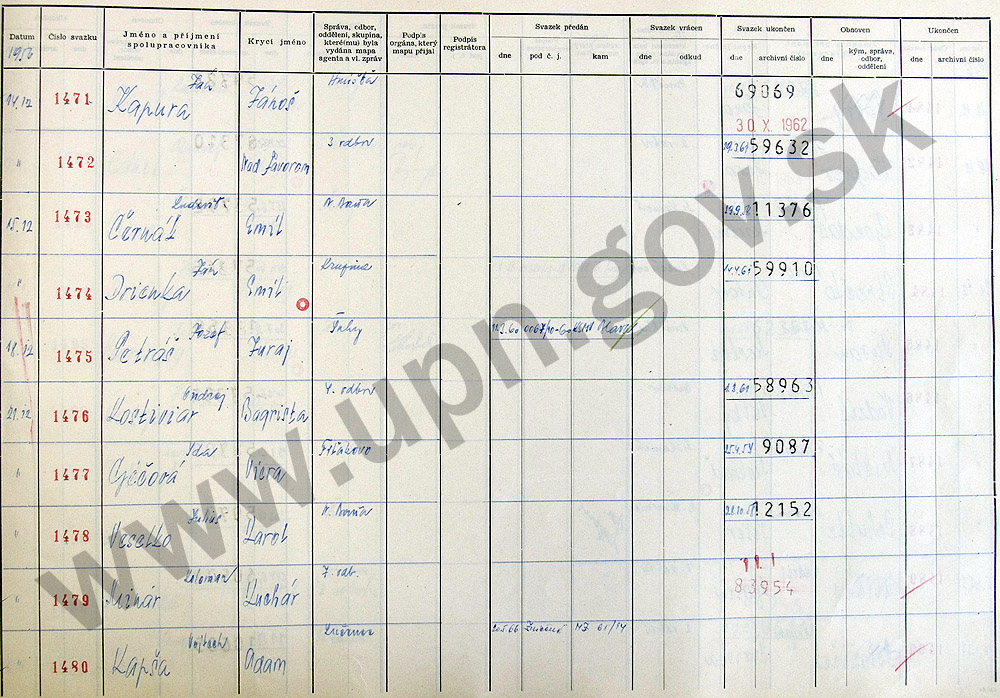 Datum
Číslo svazku
Jméno a příjmení spolupracovníka
Krycí jméno
Správa, odbor, oddělení, skupina, které(mu) byla vydána mapa agenta a vl. zpráv
Podpis orgána, který mapu přijal
Podpis registrátora
Svazek předán
dne
pod č. j.
kam
Svazek vrácen
dne
odkud
Svazek ukončen
dne
archivní číslo
Obnoven
dne
kým, správa, odbor, oddělení
Ukončen
dne
archivní číslo
1956
14.12 1471 Ján Kapura Jánoš 69069
30. X. 1962
" 1472 Nad Jávorom 3 odbor 59632
15.12 1473 Ludovít Černák Emil N. Baňa 11376
" 1474 Ján Drienka Emil Krupina 14.4.61 59910
18.12 1475 Jozef Petráš Juraj Šahy
21.12 1476 Ondrej Kostiviar Bagrista 4. odbor 58963
" 1477 Ida Viera Fiľakovo 9087
" 1478 Július Veselko Karol N. Baňa 12152
" 1479 Koloman Minár Kuchár 7. odb. 83954
" 1480 Vojtech Kapša Adam Lučenec
www.upn.gov.sk